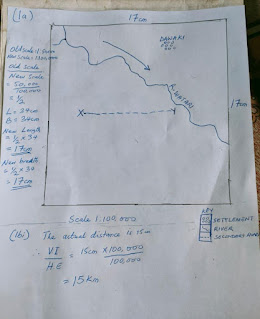 (1a)
17cm
DAWAKI
Old scale 1:50,000
New Scale 1:100,000
Old Scale
New Scale
= 50,000
100,000
= 1/2
L = 34cm
B = 34cm
New Length
= 1/2 × 34
= 17cm
New breadth
= 1/2 × 34
= 17cm
X
17cm
Scale 1:100,000
KEY
SETTLEMENT
RIVER
(1bi) The actual distance is 15cm
∴ VI = 15cm × 100,000
HE 100,000
= 15Km